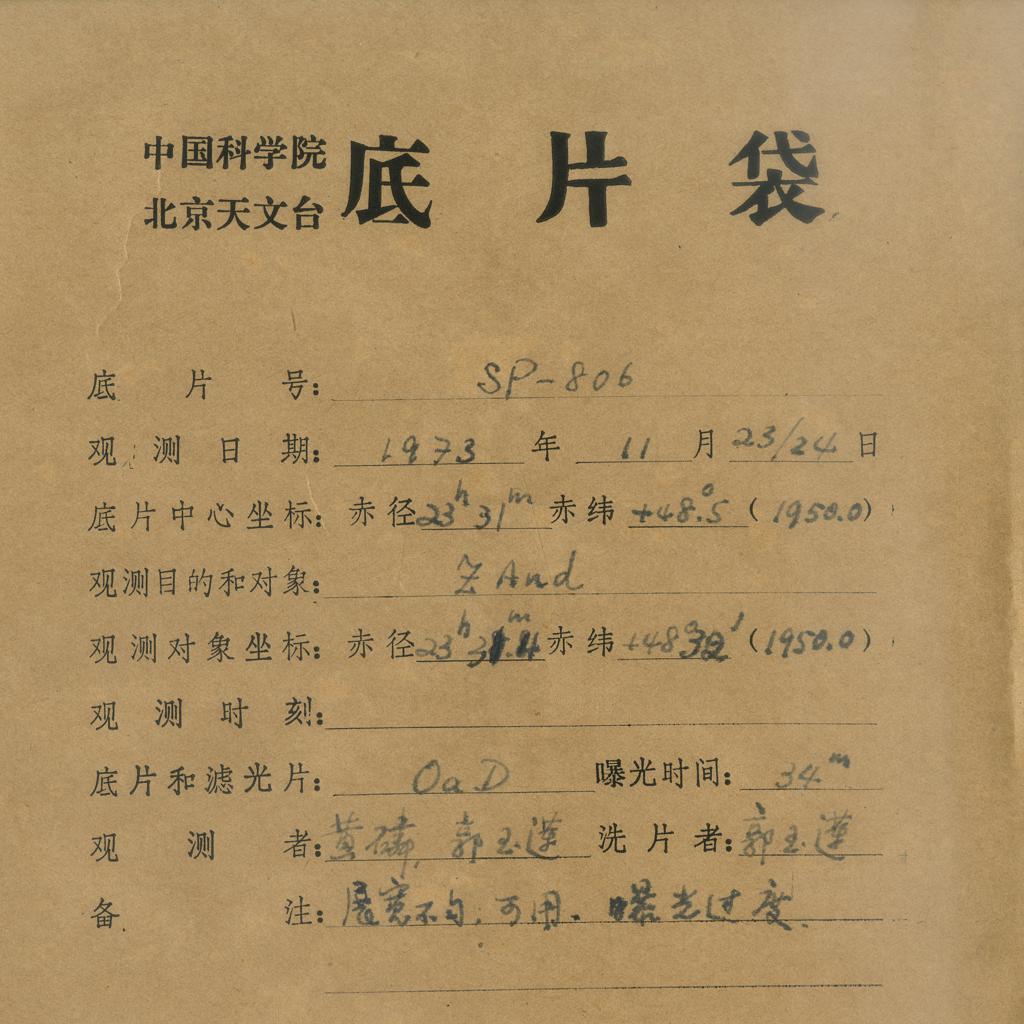 中国科学院
北京天文台
底片袋
底片号: SP-806
观测日期: 1973年11月23/24日
底片中心坐标: 赤径23h31m赤纬+48°.5(1950.0)
观测目的和对象: Z And
观测对象坐标: 赤径23h31m.4赤纬+48°32′(1950.0)
观测时刻:
底片和滤光片: OaD 曝光时间: 34m
观测者: 黄磷,郭玉莲 洗片者: 郭玉莲
备注: 展宽不匀.可用.曝光过度.